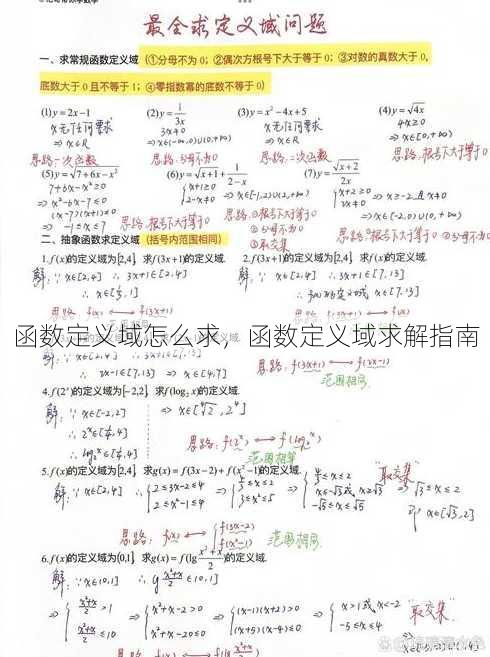 最全求定义域问题
一、求常规函数定义域 (①分母不为 0; ②偶次方根号下大于等于 0; ③对数的真数大于 0,
底数大于 0 且不等于 1; ④零指数幂的底数不等于 0)
(1) y=2x-1 (2) y=1/3x (3) y=x²-4x+5 (4) y=√4x
x无任何要求 3x≠0 x无任何要求 4x≥0
⇒ x∈R ⇒ x∈(-∞,0)∪(0,+∞) ⇒ x∈R ⇒ x∈[0,+∞)
思路:一次函数 思路:分母不为0 思路:二次函数 思路:根号下大于等于0
(5) y=√7+6x-x² (6) y=√x+1+1/2-x (7) y=√x+2/2x
7+6x-x²≥0 {x+1≥0 {x+2≥0
⇒ x²-6x-7≤0 2-x≠0 ⇒ x∈[-1,2)∪(2,+∞) 2x≠0 ⇒ x≥-2且x≠0
(x-7)(x+1)≤0 思路:①根号下大于等于0 ⇒ x∈[-2,0)∪(0,+∞)
⇒ -1≤x≤7 思路:根号下大于等于0 ②分母不为0 思路:①根号下大于等于0 ②分母不为0
③取交集
二、抽象函数求定义域 (括号内范围相同)
1. f(x)的定义域为[2,4], 求f(3x+1)的定义域. 2. f(3x+1)的定义域为[2,4], 求f(x)的定义域.
解: ∵ x∈[2,4] ∴ 3x+1∈[2,4] 解: ∵ x∈[2,4] ∴ 3x+1∈[7,13]
∴ x∈[1/3,1] ∴ f(x)的定义域 x∈[7,13]
思路: f(x) ↔ f(3x+1) 思路: f(3x+1) ↔ f(x)
函数定义域怎么求，函数定义域求解指南
∴ 2x-1∈[7,13] ⇒ x∈[4,7] 思路: f(3x+1) ↔ f(2x-1)
范围相同
4. f(2ˣ)的定义域为[-2,2], 求f(log₂x)的定义域.
解: ∵ x∈[-2,2] ⇒ x∈[⁴√2, 2⁴]
∴ 2ˣ∈[1/4,4]
∴ log₂x∈[1/4,4] 思路: f(2ˣ) ↔ f(log₂x)
范围相等
5. f(x)的定义域为[2,4], 求g(x)=f(3x-2)+f(x²-1)的定义域.
解: ∵ x∈[2,4] ∴ {2≤3x-2≤4 2≤x²-1≤4 ⇒ {4/3≤x≤2 3≤x²≤5 ⇒ {4/3≤x≤2 x≤-√3或x≥√3 -√5≤x≤√5 "取交集" ⇒ √3≤x≤2
即 x∈[√3,2]
思路: f(x) ↔ {f(3x-2) f(x²-1) 范围相同
6. f(x)的定义域为(0,1], 求g(x)=f(lg x²+x/2)的定义域.
解: ∵ x∈(0,1] ∴ lg x²+x/2∈(0,1]
⇒ {x²+x/2>1 x²+x/2≤10 ⇒ {x²+x-2>0 x²+x-20≤0 ⇒ {(x-1)(x+2)>0 (x+5)(x-4)≤0 ⇒ {x>1或x<-2 -5≤x≤4 "取交集"